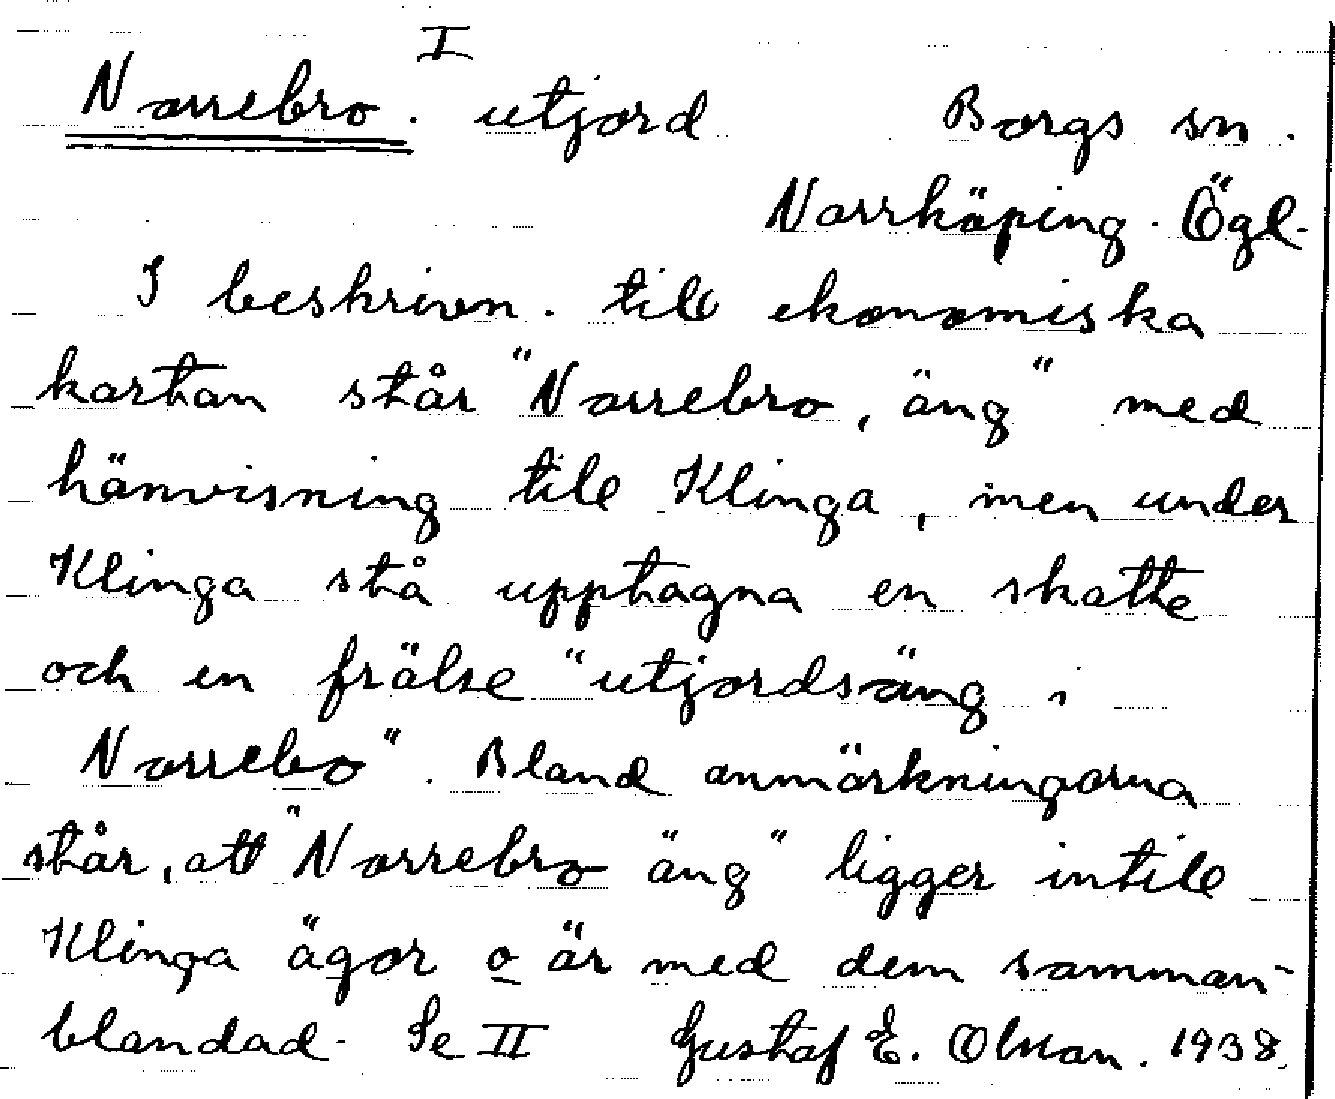 I
Norrebro. utjord Borgs sn.
Norrköping. Ögl.
I beskrivn. till ekonomiska
kartan står "Norrebro, äng" med
hänvisning till Klinga, men under
Klinga stå upptagna en skatte
och en frälse "utjordsäng i
Norrebo". Bland anmärkningarna
står, att "Norrebro äng" ligger intill
Klinga ägor o är med dem samman-
blandad. Se II Gustaf E. Olsson. 1938.